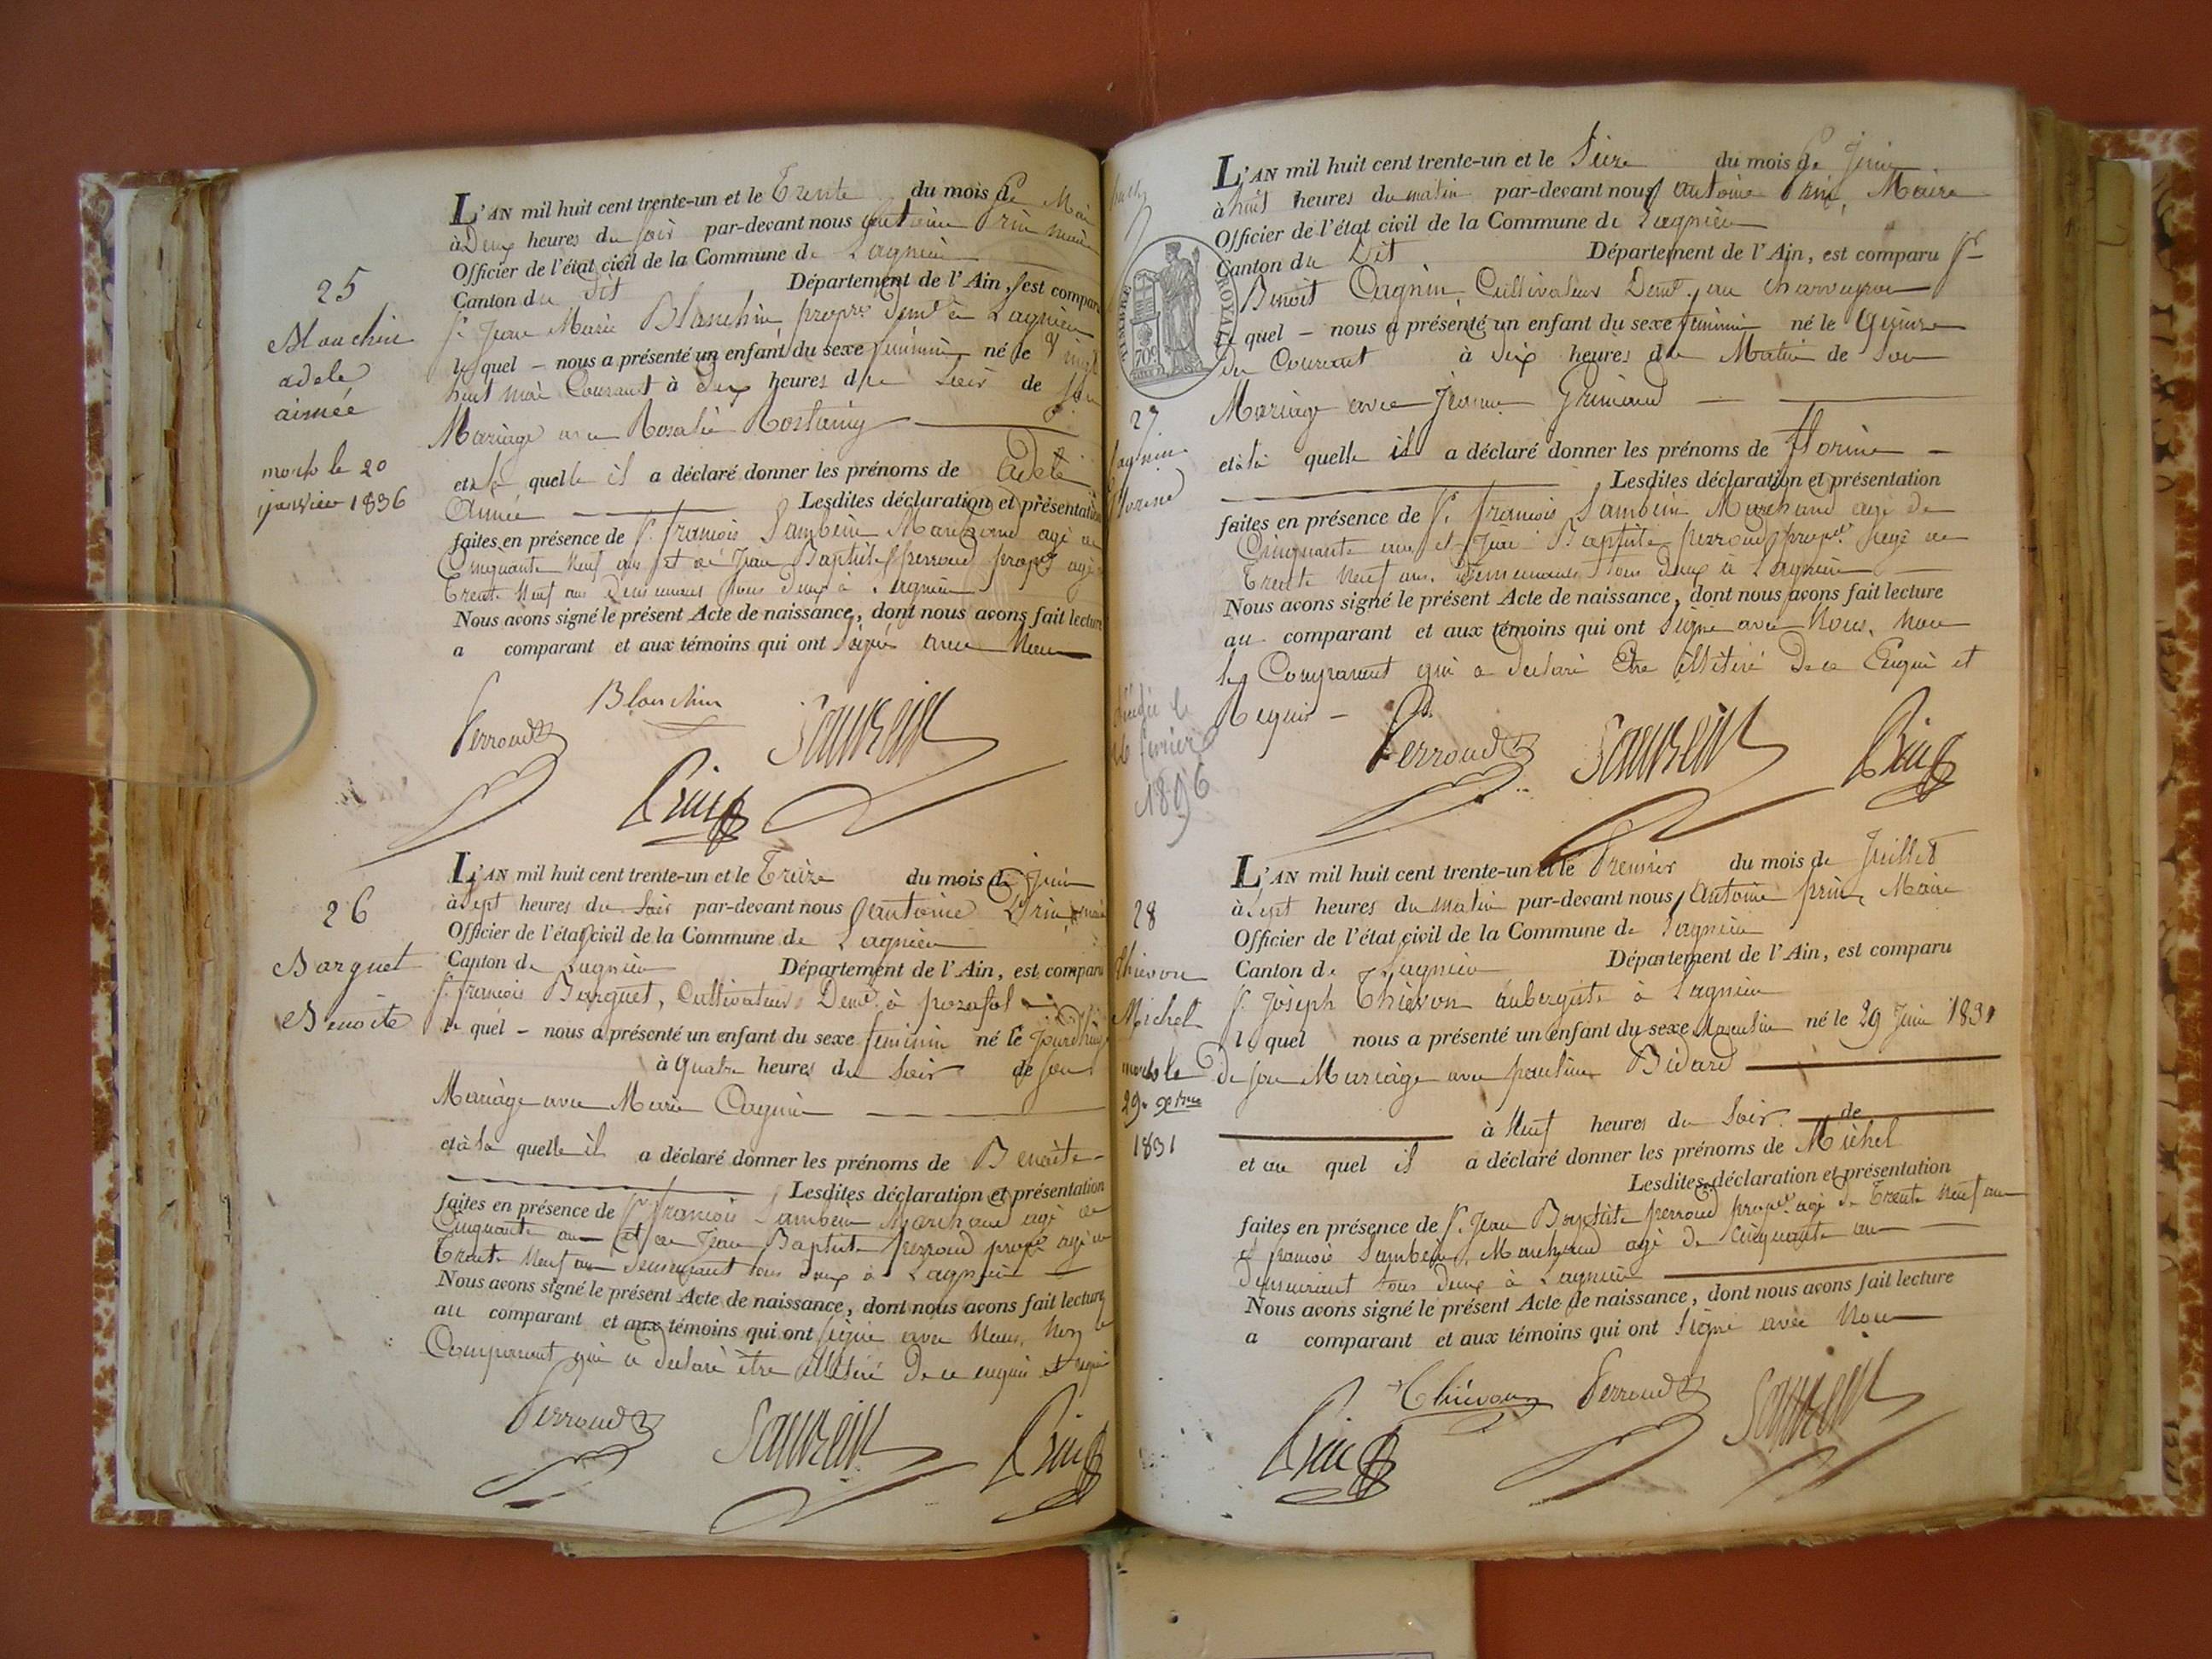 25
Blanchin
adele
aimée
morte le 20
janvier 1836
L'AN mil huit cent trente-un et le Trente du mois de Mai
à Deux heures du soir par-devant nous antoine Prin maire
Officier de l'état civil de la Commune de Lagnieu
Canton du dit Département de l'Ain, est comparu
Sr. Jean Marie Blanchin, propre. demt. à Lagnieu
le quel - nous a présenté un enfant du sexe feminin né le Vingt
huit mai Courant à Deux heures du soir de son
Mariage avec Rosalie Rostaing
et à la quelle il a déclaré donner les prénoms de Adele
Aimée Lesdites déclaration et présentation
faites en présence de Sr. francois Sambein Marchand agé de
Cinquante Neuf ans et de Jean Baptiste perroud propre agé
Trente Neuf ans Demeurant tous deux à Lagnieu
Nous avons signé le présent Acte de naissance, dont nous avons fait lecture
a comparant et aux témoins qui ont signé avec Nous
Perroud Blanchin
Prin
26
Barquet
Benoite
L'AN mil huit cent trente-un et le Treize du mois de Juin
à Sept heures du Soir par-devant nous antoine Prin, maire
Officier de l'état civil de la Commune de Lagnieu
Canton de Lagnieu Département de l'Ain, est comparu
Sr. francois Barquet, Cultivateur Demt. à posafol
le quel - nous a présenté un enfant du sexe feminin né le Jourdhuy
à Quatre heures du Soir de son
Mariage avec Marie Cagnin
et à la quelle il a déclaré donner les prénoms de Benoite -
Lesdites déclaration et présentation
faites en présence de Sr. francois Sambein Marchand agé de
Cinquante ans et de Jean Baptiste perroud propre agé de
Trente Neuf ans demeurant tous deux à Lagnieu
Nous avons signé le présent Acte de naissance, dont nous avons fait lecture
au comparant et aux témoins qui ont signé avec Nous, Non le
Comparant qui a declaré être illitéré De ce enquis et requis
Perroud Prin
TIMBRE ROYAL
70c
27
Cagnin
florine
décédée le
16 fevrier
1896
L'AN mil huit cent trente-un et le Seize du mois de Juin
à huit heures du matin par-devant nous antoine Prin, Maire
Officier de l'état civil de la Commune de Lagnieu
Canton du Dit Département de l'Ain, est comparu Sr
Benoit Cagnin, Cultivateur Demt. au charveyron
le quel - nous a présenté un enfant du sexe feminin né le Quinze
du Courant à dix heures du Matin de son
Mariage avec Jeanne Grimaud
et à la quelle il a déclaré donner les prénoms de florine -
Lesdites déclaration et présentation
faites en présence de Sr. francois Sambein Marchand agé de
Cinquante ans et Jean Baptiste perroud propre. agé de
Trente Neuf ans. Demeurant tous Deux à Lagnieu
Nous avons signé le présent Acte de naissance, dont nous avons fait lecture
au comparant et aux témoins qui ont signé avec Nous, Non
le Comparant qui a declaré Etre illitéré De ce Enquis et
Requis -
Perroud Prin
28
thievon
Michel
mort le
29. 9bre
1831
L'AN mil huit cent trente-un et le Premier du mois de Juillet
à Sept heures du matin par-devant nous Antoine prin, Maire
Officier de l'état civil de la Commune de Lagnieu
Canton de Lagnieu Département de l'Ain, est comparu
Sr. Joseph Thievon aubergiste à Lagnieu
le quel nous a présenté un enfant du sexe Masculin né le 29 Juin 1831
De son Mariage avec pauline Bidard
à Neuf heures du Soir de
et au quel il a déclaré donner les prénoms de Michel
Lesdites déclaration et présentation
faites en présence de Sr. Jean Baptiste perroud propre. agé de Trente Neuf ans
et francois Sambein, Marchand agé de cinquante ans
demeurant tous deux à Lagnieu
Nous avons signé le présent Acte de naissance, dont nous avons fait lecture
a comparant et aux témoins qui ont signé avec Nous
Thievon Perroud
Prin